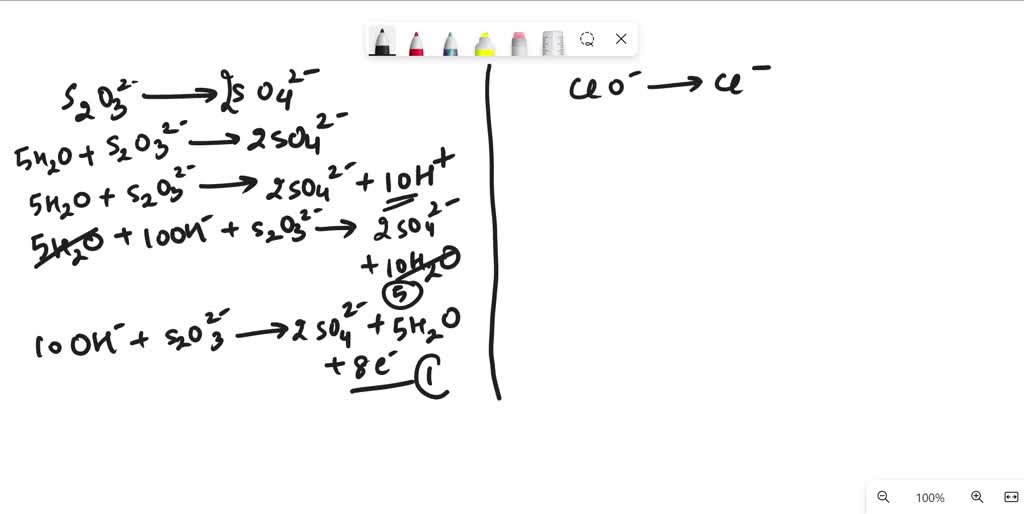 S₂O₃²⁻ ⟶ 2SO₄²⁻
5H₂O + S₂O₃²⁻ ⟶ 2SO₄²⁻
5H₂O + S₂O₃²⁻ ⟶ 2SO₄²⁻ + 10H⁺
5H₂O + 10OH⁻ + S₂O₃²⁻ ⟶ 2SO₄²⁻
+ 10H₂O
5
10OH⁻ + S₂O₃²⁻ ⟶ 2SO₄²⁻ + 5H₂O
+ 8e⁻ 1
ClO⁻ ⟶ Cl⁻
100%